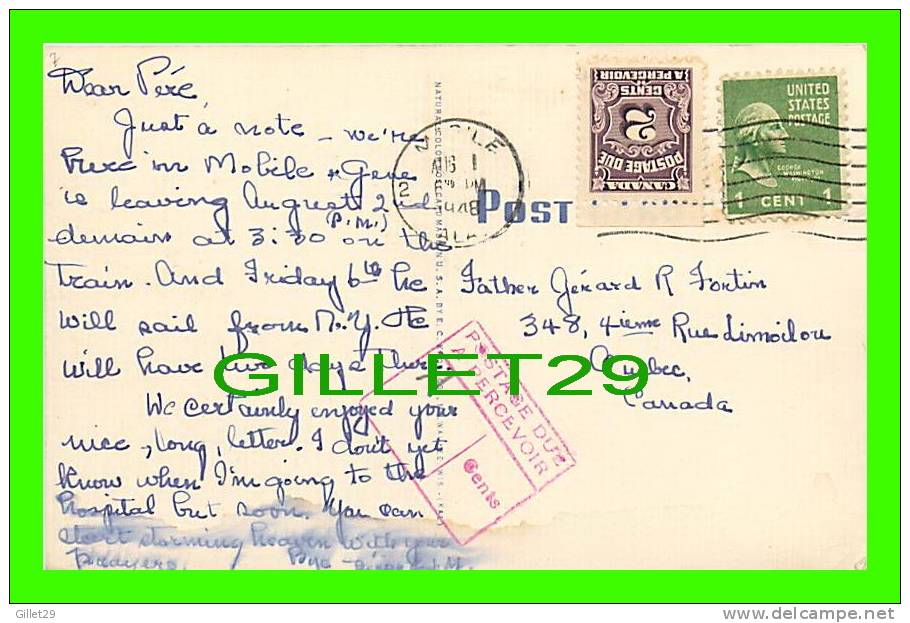 Dear Père,
Just a note - we're
here in Mobile & Gene
is leaving August 2nd
(P.M.)
demain at 3:30 on the
train. And Friday 6th he
will sail from N.Y. He
will have two days there.
We certainly enjoyed your
nice, long, letter. I don't yet
know when I'm going to the
hospital but soon. You can
start storming heaven with your
prayers. Bye
MOBILE
AUG 1
PM
1948
ALA.
2
POST
CANADA
POSTAGE DUE
2
CENTS
A PERCEVOIR
UNITED
STATES
POSTAGE
GEORGE
WASHINGTON
1 CENT 1
Father Gérard R Fortin
348, 4ieme Rue Limoilou
Quebec,
Canada
POSTAGE DUE
A PERCEVOIR
Cents
GILLET29
Gillet29
http://www.delcampe.net